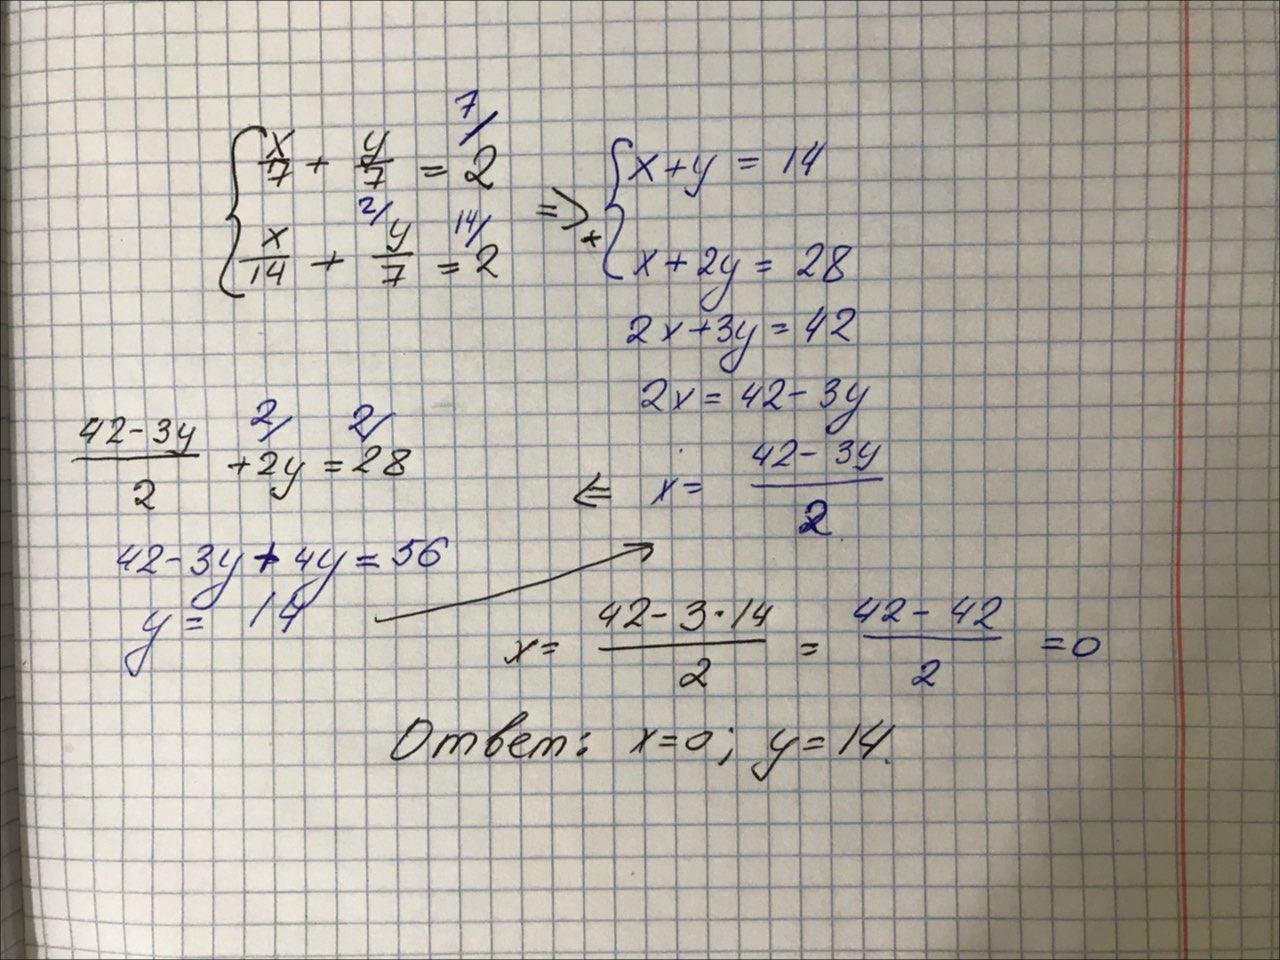 x/7 + y/7 = 2 7/
x/14 + y/7 = 2 2/ 14/
=> +
x + y = 14
x + 2y = 28
2x + 3y = 42
2x = 42 - 3y
x = (42 - 3y)/2
<=
(42 - 3y)/2 + 2y = 28 2/ 2/
42 - 3y + 4y = 56
y = 14
x = (42 - 3·14)/2 = (42 - 42)/2 = 0
Ответ: x=0; y=14.